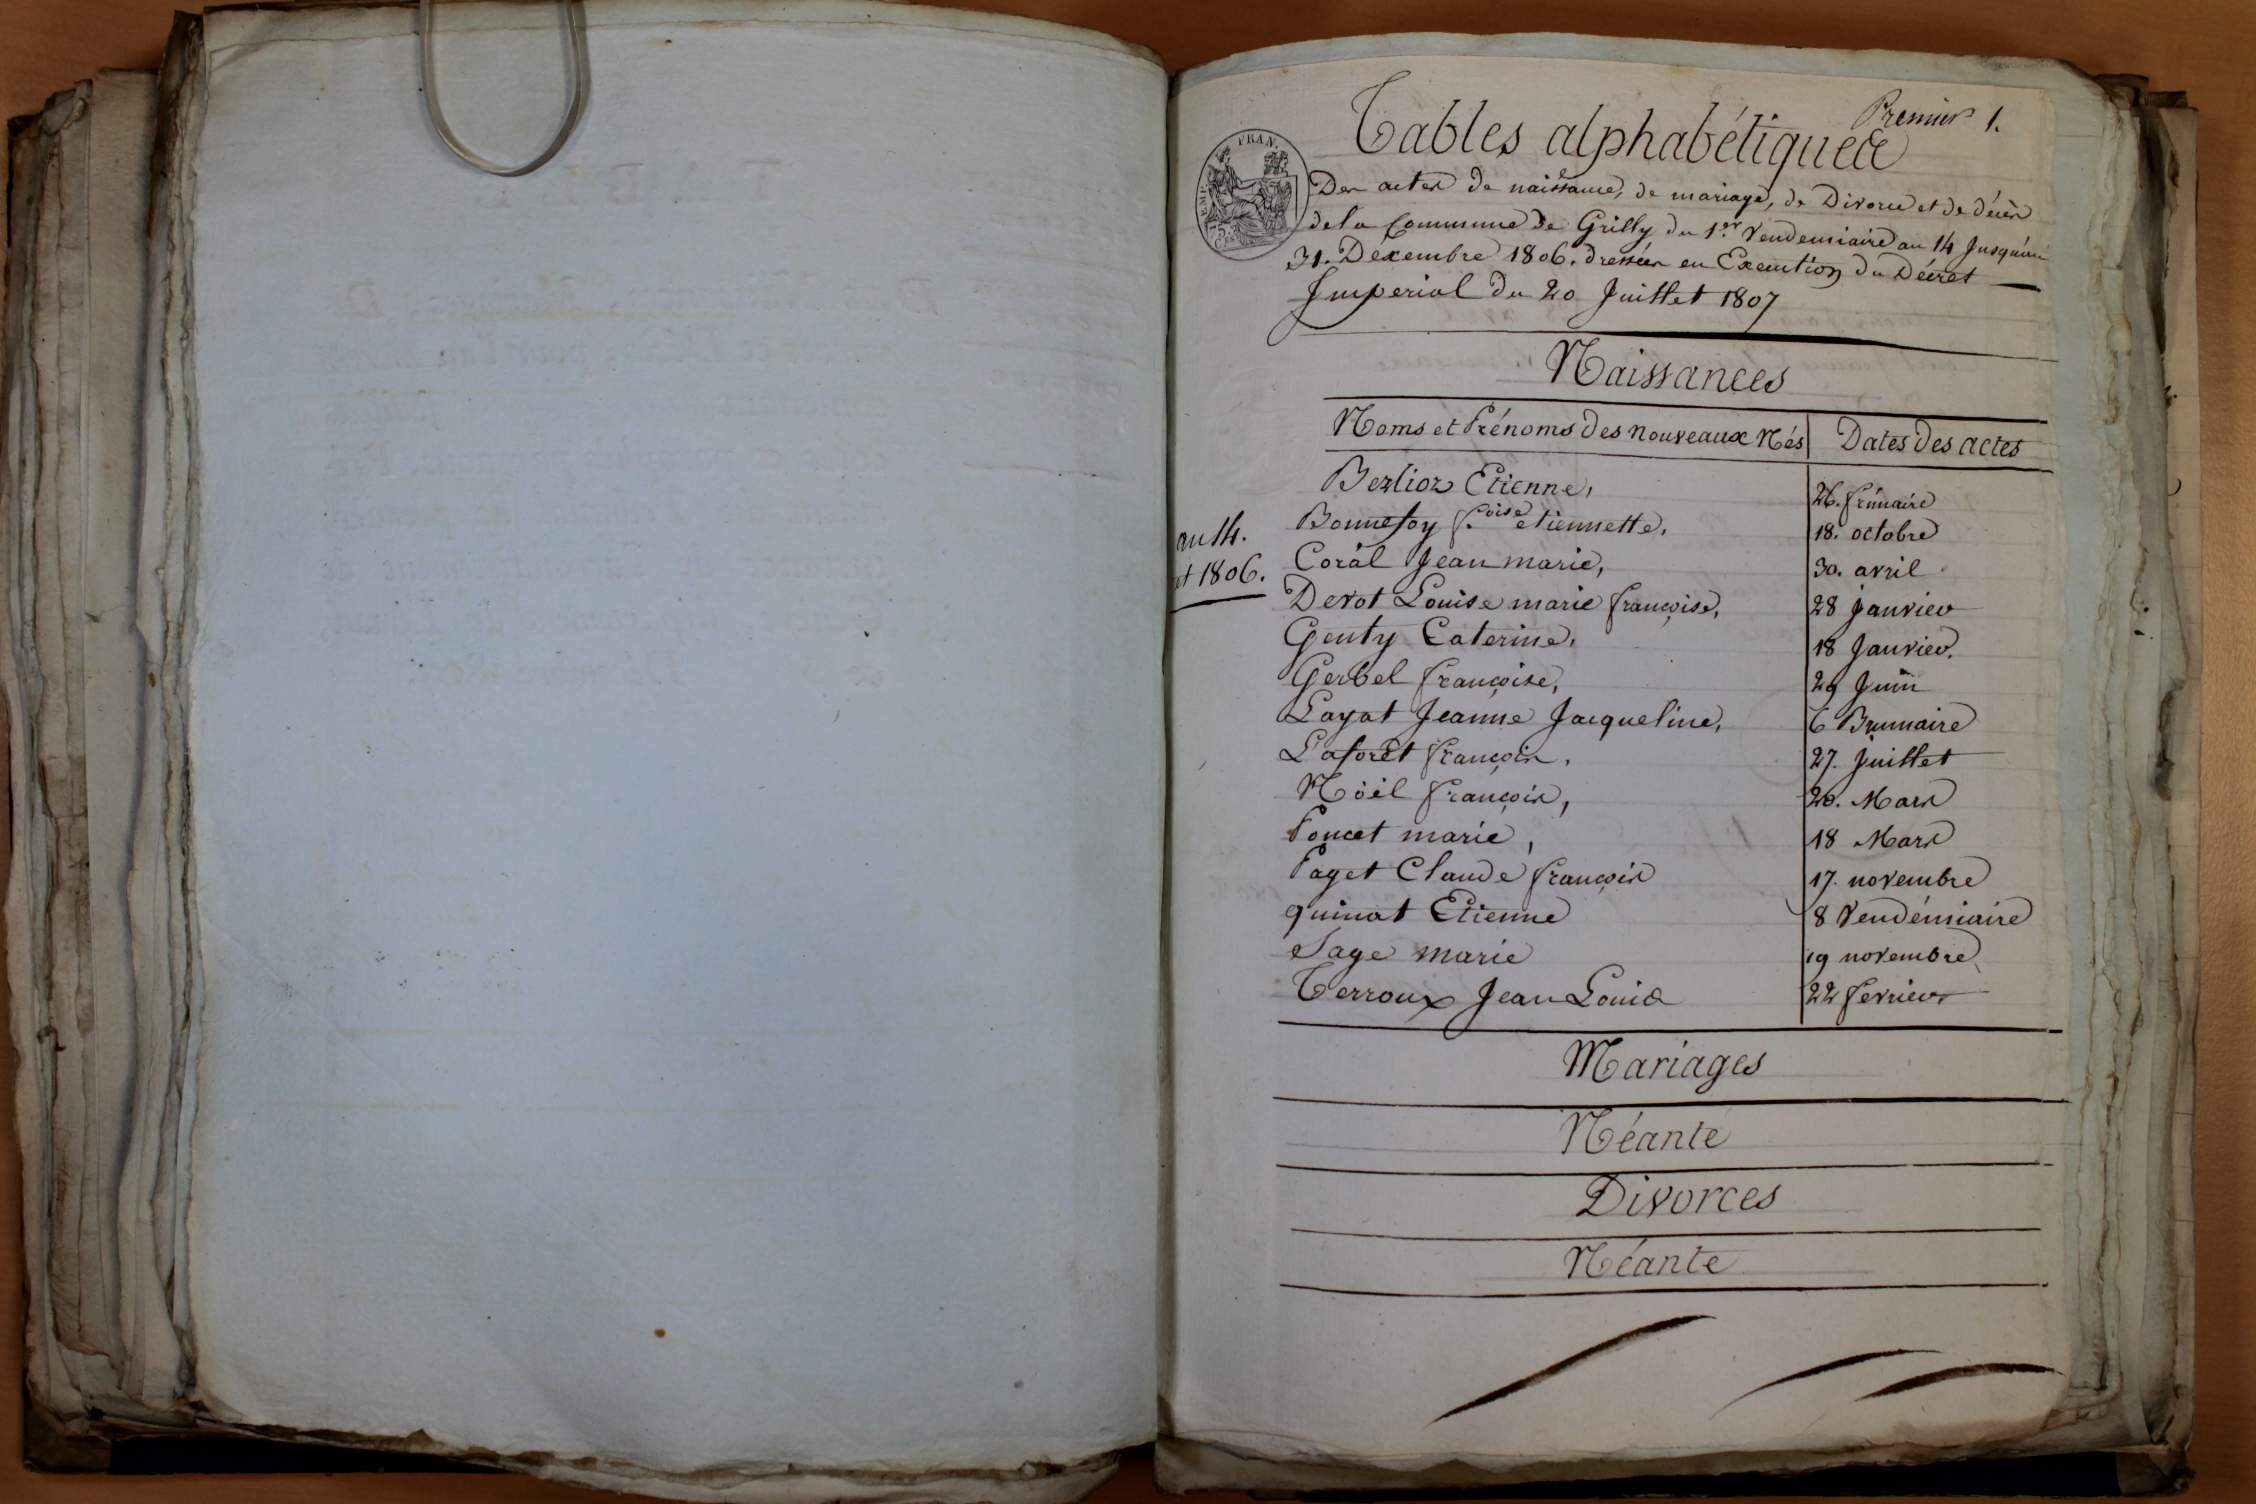 Premier 1.
EMP. FRAN.
75. C.es
Tables alphabétiques
Des actes de naissance, de mariage, de Divorce et de décès
de la Commune de Grilly du 1.er Vendemiaire an 14 Jusqu'au
31. Décembre 1806. dressées en Execution du Décret
Imperial du 20 Juillet 1807
Naissances
Noms et Prénoms des nouveaux Nés Dates des actes
an 14.
et 1806.
Berlioz Etienne, 26. frimaire
Bonnefoy f.oise etiennette, 18. octobre
Coral Jean marie, 30. avril
Devot Louise marie françoise, 28 janvier
Genty Caterine, 18 Janvier.
Gerbel françoise, 29 Juin
Layat Jeanne Jacqueline, 6 Brumaire
Laforêt françois, 27. Juillet
Nöel françois, 20. Mars
Poncet marie, 18 Mars
Paget Claude françois 17. novembre
quinat Etienne 8 Vendémiaire
Sage marie 19 novembre
Terroux Jean Louis 22 fevrier
Mariages
Néante
Divorces
Néante